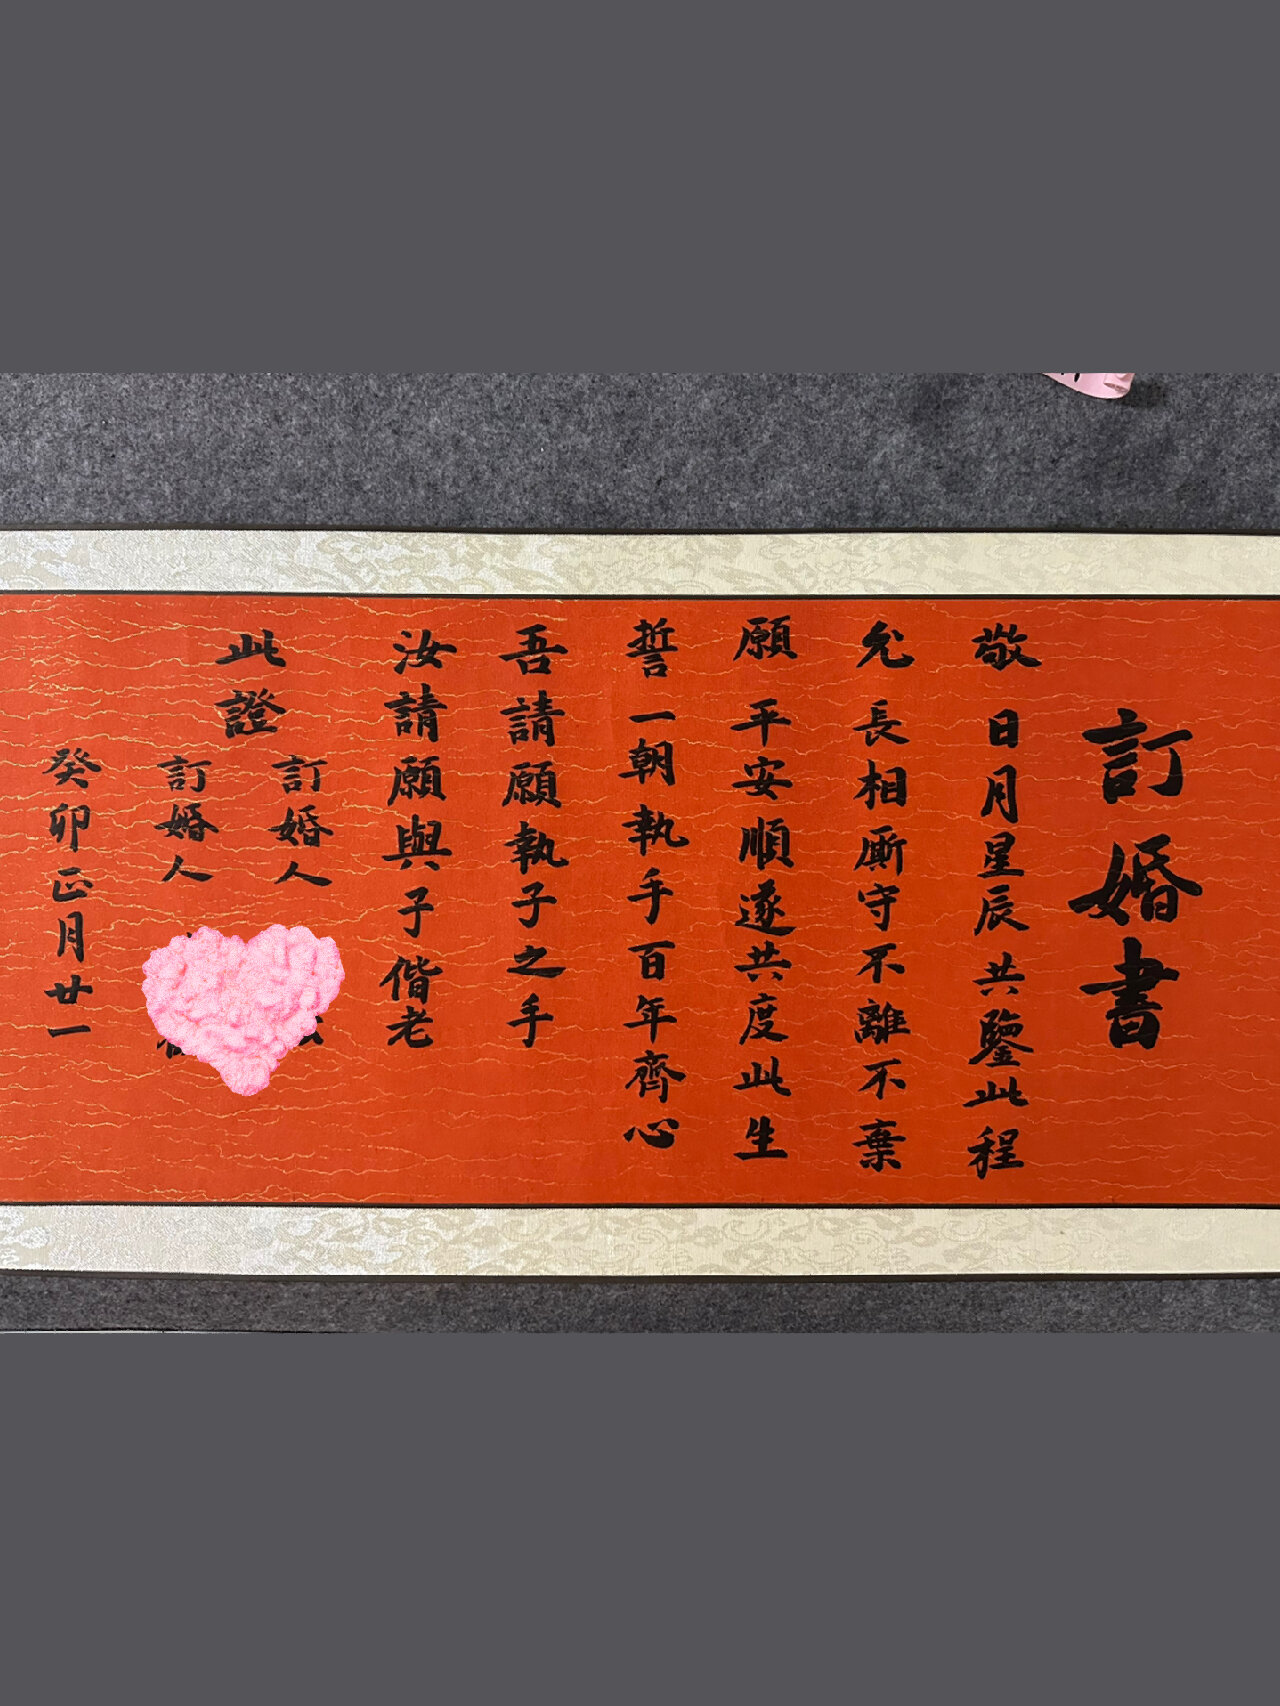 訂婚書
敬 日月星辰共鑒此程
允 長相廝守不離不棄
願 平安順遂共度此生
誓一朝執手百年齊心
吾請願執子之手
汝請願與子偕老
此證
訂婚人
訂婚人
癸卯正月廿一